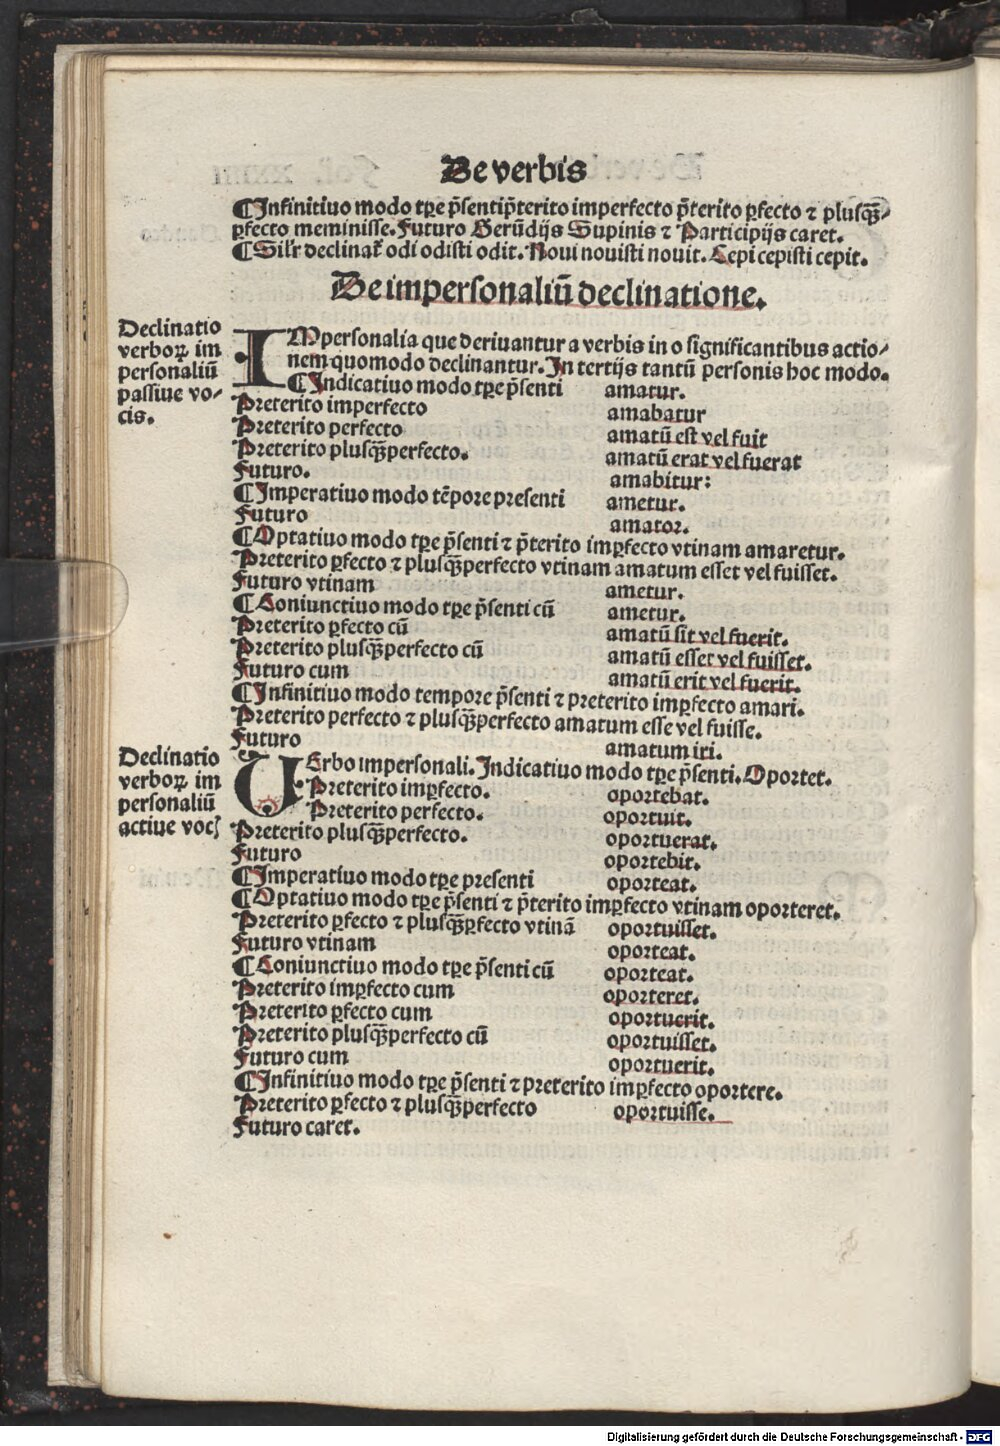 De verbis
¶Infinitiuo modo tꝑe p̃senti p̃terito imperfecto p̃terito ꝑfecto ⁊ plusq̃ꝫ-
ꝑfecto meminisse. Futuro Gerũdijs Supinis ⁊ Participijs caret.
¶Silr̃ declinat̃ odi odisti odit. Noui nouisti nouit. Cepi cepisti cepit.
De impersonaliũ declinatione.
Declinatio
verboꝝ im
personaliũ
passiue vo-
cis.
IMpersonalia que deriuantur a verbis in o significantibus actio-
nem quomodo declinantur. In tertijs tantũ personis hoc modo.
¶Indicatiuo modo tꝑe p̃senti amatur.
Preterito imperfecto amabatur
Preterito perfecto amatũ est vel fuit
Preterito plusq̃ꝫperfecto. amatũ erat vel fuerat
Futuro. amabitur:
¶Imperatiuo modo tẽpore presenti ametur.
Futuro amator.
¶Optatiuo modo tꝑe p̃senti ⁊ p̃terito imꝑfecto vtinam amaretur.
Preterito ꝑfecto ⁊ plusq̃ꝫperfecto vtinam amatum esset vel fuisset.
Futuro vtinam ametur.
¶Coniunctiuo modo tꝑe p̃senti cũ ametur.
Preterito ꝑfecto cũ amatũ sit vel fuerit.
Preterito plusq̃ꝫperfecto cũ amatũ esset vel fuisset.
Futuro cum amatũ erit vel fuerit.
¶Infinitiuo modo tempore p̃senti ⁊ preterito imꝑfecto amari.
Preterito perfecto ⁊ plusq̃ꝫperfecto amatum esse vel fuisse.
Futuro amatum iri.
Declinatio
verboꝝ im
personaliũ
actiue vocꝭ
VErbo impersonali. Indicatiuo modo tꝑe p̃senti. Oportet.
Preterito imꝑfecto. oportebat.
Preterito perfecto. oportuit.
Preterito plusq̃ꝫperfecto. oportuerat.
Futuro oportebit.
¶Imperatiuo modo tꝑe presenti oporteat.
¶Optatiuo modo tꝑe p̃senti ⁊ p̃terito imꝑfecto vtinam oporteret.
Preterito ꝑfecto ⁊ plusq̃ꝫꝑfecto vtinã oportuisset.
Futuro vtinam oporteat.
¶Coniunctiuo modo tꝑe p̃senti cũ oporteat.
Preterito imꝑfecto cum oporteret.
Preterito ꝑfecto cum oportuerit.
Preterito plusq̃ꝫperfecto cũ oportuisset.
Futuro cum oportuerit.
¶Infinitiuo modo tꝑe p̃senti ⁊ preterito imꝑfecto oportere.
Preterito ꝑfecto ⁊ plusq̃ꝫperfecto oportuisse.
Futuro caret.
Digitalisierung gefördert durch die Deutsche Forschungsgemeinschaft - DFG